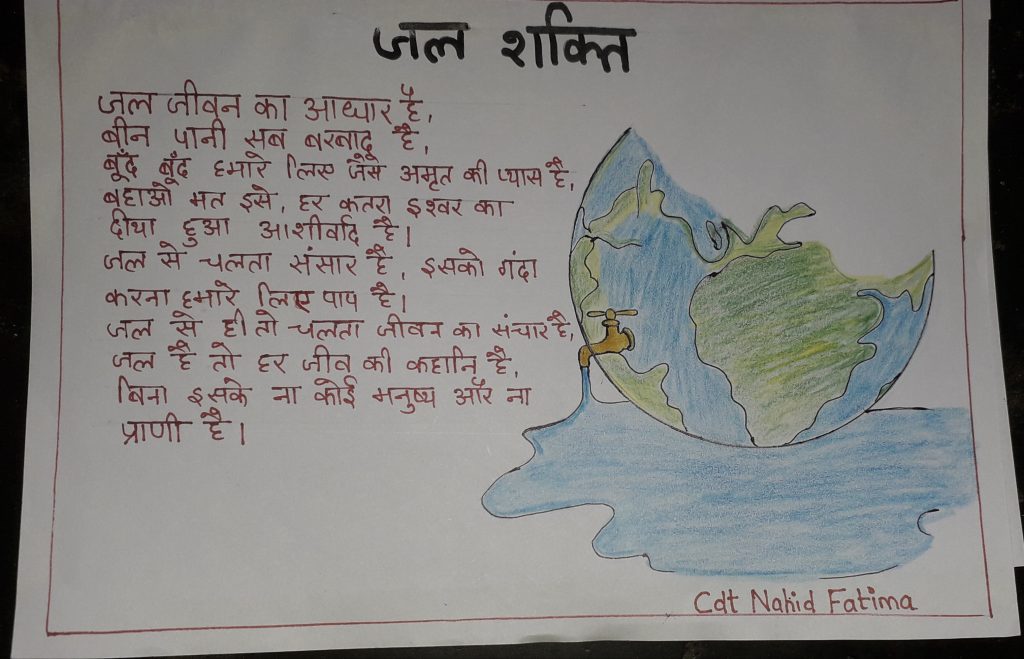 जल शक्ति
जल जीवन का आधार है,
बीन पानी सब बरबाद है,
बूँद बूँद हमारे लिए जैसे अमृत की प्यास है,
बहाओ मत इसे, हर कतरा इश्वर का
दीया हुआ आशीर्वाद है।
जल से चलता संसार है, इसको गंदा
करना हमारे लिए पाप है।
जल से ही तो चलता जीवन का संचार है,
जल है तो हर जीव की कहानि है,
बिना इसके ना कोई मनुष्य और ना
प्राणी है।
Cdt Nahid Fatima